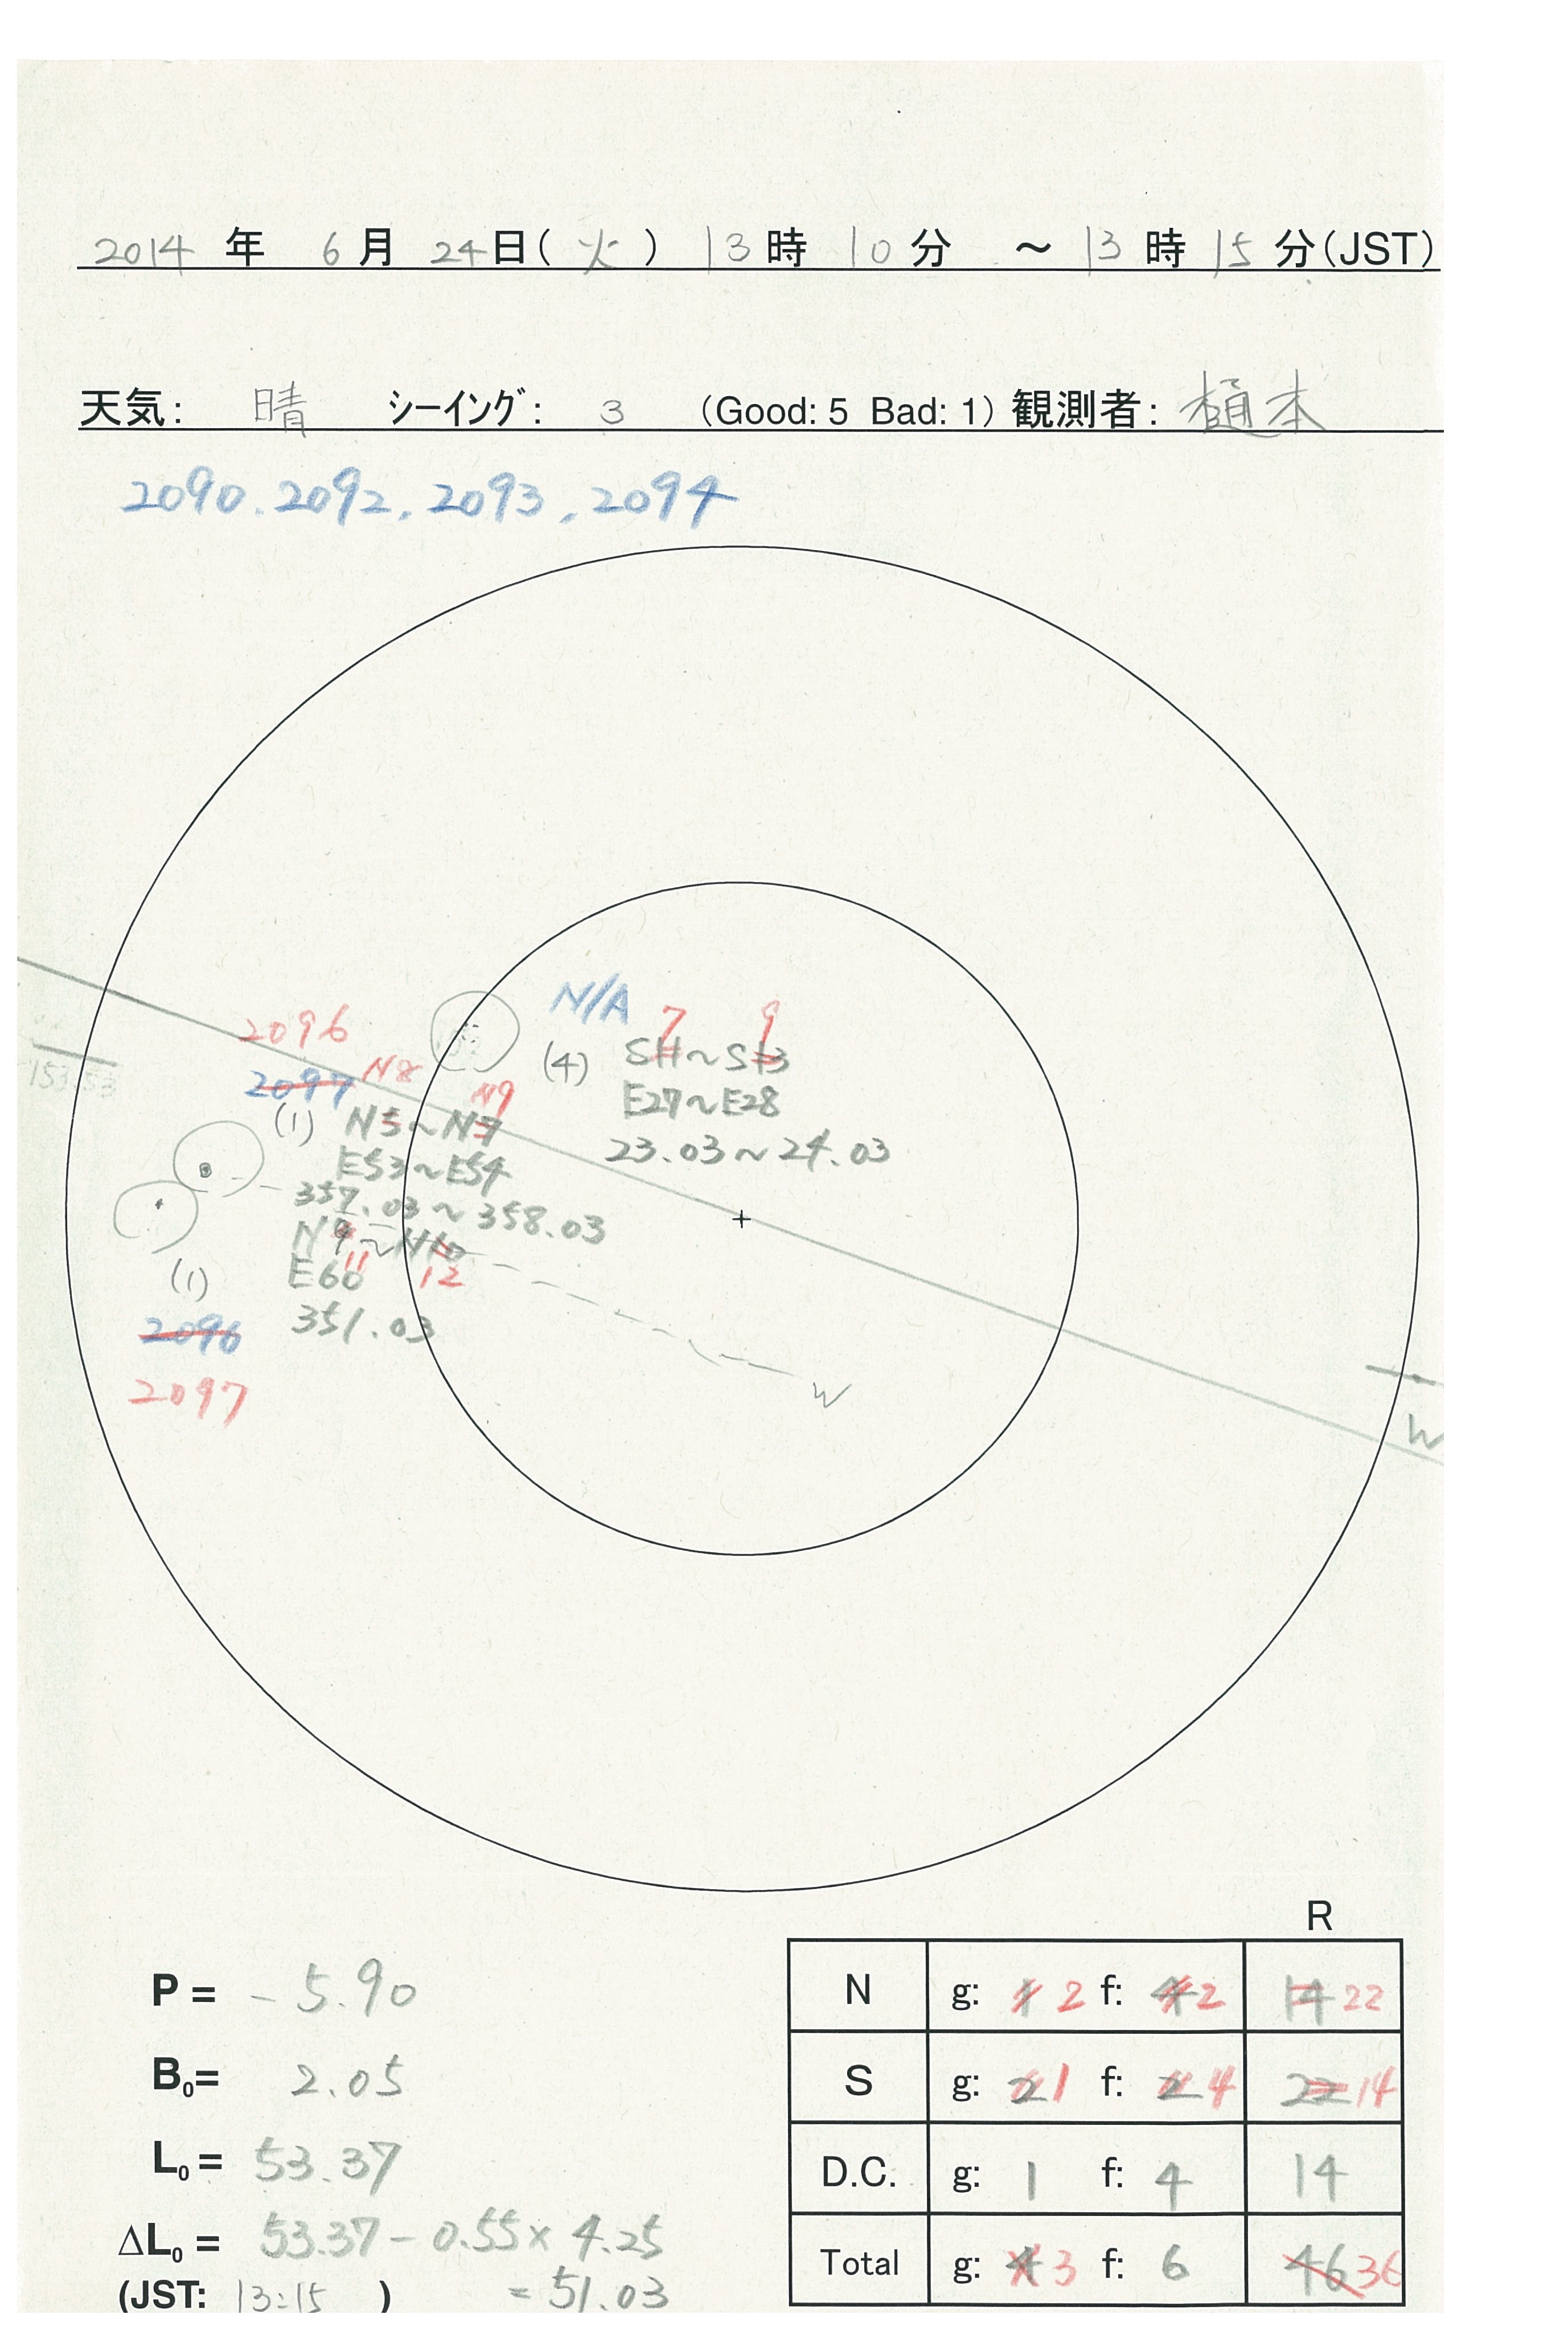 2014 年 6 月 24日( 火 ) 13 時 10 分 ～ 13 時 15 分(JST)
天気: 晴 シーイング: 3 (Good: 5 Bad: 1) 観測者: 樋本
2090. 2092, 2093, 2094
N/A
7 9
(4) S11~S13
E27~E28
23.03~24.03
2096
2097 N8
N9
(1) N5~N7
E53~E54
357.03~358.03
N9~N10
11 12
E60
(1)
351.03
2096
2097
153.53
W
W
R
P = -5.90
B0= 2.05
L0= 53.37
ΔL0 = 53.37-0.55×4.25
(JST: 13:15 ) = 51.03
N g: 1 2 f: 4 2 14 22
S g: 2 1 f: 2 4 22 14
D.C. g: 1 f: 4 14
Total g: 4 3 f: 6 46 36